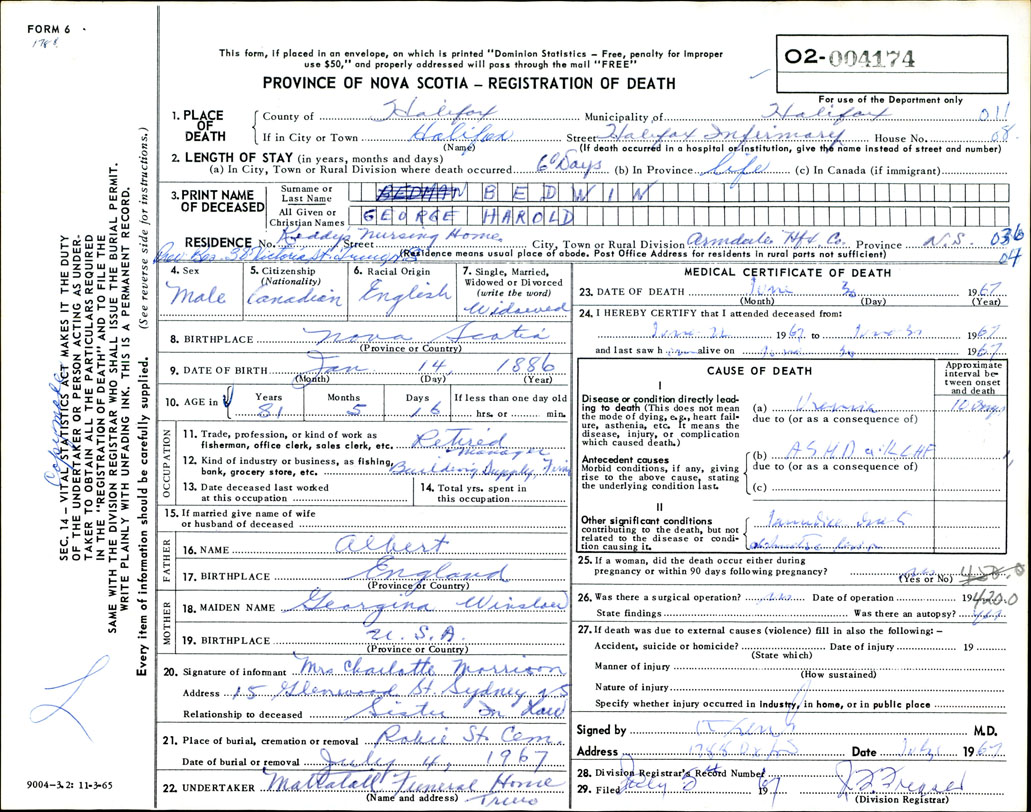 FORM 6
1788
This form, if placed in an envelope, on which is printed "Dominion Statistics – Free, penalty for improper
use $50," and properly addressed will pass through the mail "FREE"
PROVINCE OF NOVA SCOTIA – REGISTRATION OF DEATH
O2-004174
For use of the Department only
1. PLACE OF DEATH
County of Halifax Municipality of Halifax 011
If in City or Town Halifax Street Halifax Infirmary House No. 08
(Name) (If death occurred in a hospital or institution, give the name instead of street and number)
2. LENGTH OF STAY (in years, months and days)
(a) In City, Town or Rural Division where death occurred 60 Days (b) In Province Life (c) In Canada (if immigrant)
3. PRINT NAME OF DECEASED
Surname or Last Name BEDWIN
All Given or Christian Names GEORGE HAROLD
RESIDENCE No. Street Nursing Home City, Town or Rural Division Armdale Hfx Co. Province N.S. 036
04
(Residence means usual place of abode. Post Office Address for residents in rural parts not sufficient)
4. Sex Male
5. Citizenship (Nationality) Canadian
6. Racial Origin English
7. Single, Married, Widowed or Divorced (write the word) Widowed
8. BIRTHPLACE Nova Scotia
(Province or Country)
9. DATE OF BIRTH Jan 14, 1886
(Month) (Day) (Year)
10. AGE in Years 81 Months 5 Days 16 If less than one day old hrs. or min.
OCCUPATION
11. Trade, profession, or kind of work as fisherman, office clerk, sales clerk, etc. Retired Manager
12. Kind of industry or business, as fishing, bank, grocery store, etc. Building Supply Firm
13. Date deceased last worked at this occupation
14. Total yrs. spent in this occupation
15. If married give name of wife or husband of deceased
FATHER
16. NAME Albert
17. BIRTHPLACE England
(Province or Country)
MOTHER
18. MAIDEN NAME Georgina Winslow
19. BIRTHPLACE U.S.A.
(Province or Country)
20. Signature of informant Mrs Charlotte Morrison
Address 15 Glenwood St Sydney NS
Relationship to deceased Sister In Law
21. Place of burial, cremation or removal Robie St. Cem.
Date of burial or removal July 4, 1967
22. UNDERTAKER Mattatall Funeral Home
(Name and address) Truro
MEDICAL CERTIFICATE OF DEATH
23. DATE OF DEATH June 30 1967
(Month) (Day)
24. I HEREBY CERTIFY that I attended deceased from:
June 22 1967 to June 30 1967
and last saw h alive on June 30 1967
CAUSE OF DEATH
Approximate interval between onset and death
I
Disease or condition directly leading to death (This does not mean the mode of dying, e.g., heart failure, asthenia, etc. It means the disease, injury, or complication which caused death.)
(a) Uraemia 10 days
due to (or as a consequence of)
Antecedent causes
Morbid conditions, if any, giving rise to the above cause, stating the underlying condition last.
(b) ASHD
due to (or as a consequence of)
(c)
II
Other significant conditions
contributing to the death, but not related to the disease or condition causing it.
Jaundice
25. If a woman, did the death occur either during
pregnancy or within 90 days following pregnancy?
(Yes or No)
26. Was there a surgical operation? Date of operation 19 420.0
State findings Was there an autopsy?
27. If death was due to external causes (violence) fill in also the following: –
Accident, suicide or homicide? Date of injury 19
(State which)
Manner of injury
(How sustained)
Nature of injury
Specify whether injury occurred in Industry, in home, or in public place
Signed by M.D.
Address Date July 1967
28. Division Registrar's Record Number
29. Filed July 1967
(Division Registrar)
SEC. 14 – VITAL STATISTICS ACT MAKES IT THE DUTY
OF THE UNDERTAKER OR PERSON ACTING AS UNDER-
TAKER TO OBTAIN ALL THE PARTICULARS REQUIRED
IN THE "REGISTRATION OF DEATH" AND TO FILE THE
SAME WITH THE DIVISION REGISTRAR WHO SHALL ISSUE THE BURIAL PERMIT.
WRITE PLAINLY WITH UNFADING INK. THIS IS A PERMANENT RECORD.
Every item of information should be carefully supplied. (See reverse side for instructions.)
9004–3.2: 11-3-65